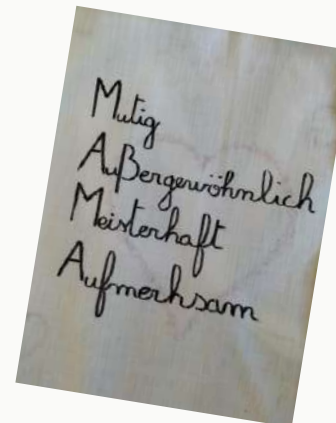 Mutig
Außergewöhnlich
Meisterhaft
Aufmerksam